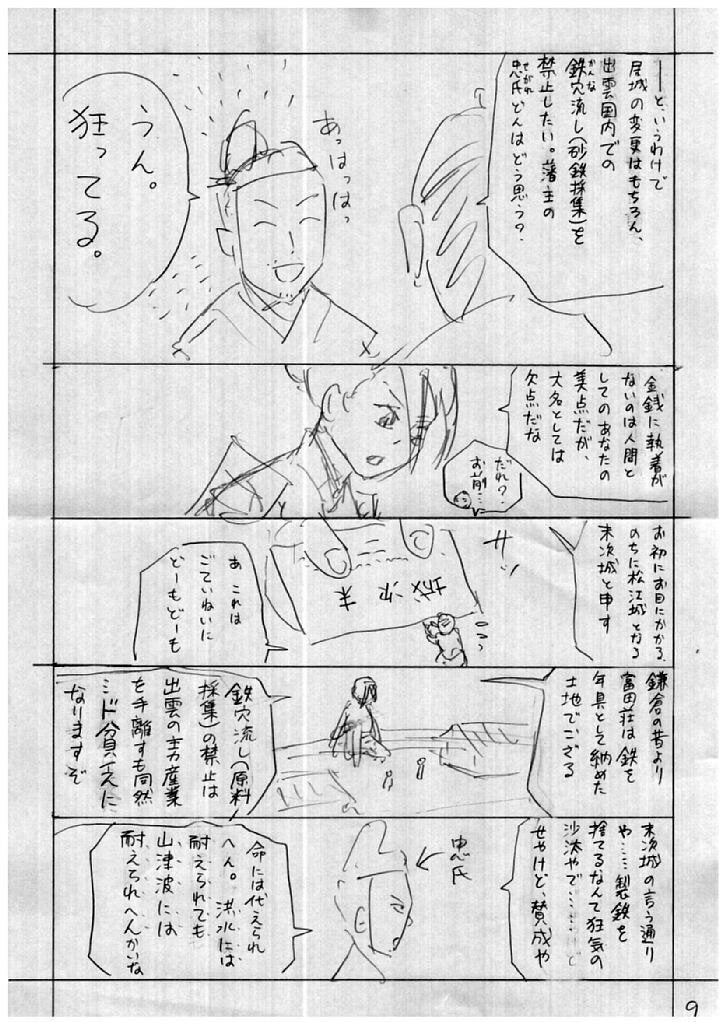 ――と、いうわけで
居城の変更はもちろん、
出雲国内での
鉄穴流し(砂鉄採集)を
かんな
禁止したい。藩主の
忠氏どんはどう思う?
せがれ
あっはっはっ
うん。
狂ってる。
金銭に執着が
ないのは人間と
してのあなたの
美点だが、
大名としては
欠点だな
だれ?
お前…
お初にお目にかかる、
のちに松江城となる
末次城と申す
サッ
末次城
あ これは
ごていねいに
どーもどーも
鎌倉の昔より
富田荘は鉄を
年貢として納めた
土地でござる
鉄穴流し(原料
採集)の禁止は
出雲の主力産業
を手離すも同然
ド貧乏に
なりますぞ
末次城の言う通り
や……製鉄を
捨てるなんて狂気の
沙汰やで………
せやけど、賛成や
忠氏
命には代えられ
へん。洪水には
耐えられても
山津波には
耐えられへんかいな
9